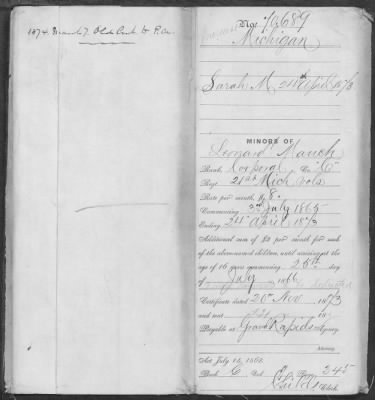 1874. March 7. Old Cert to P.A.
No. 70,689
Michigan
Sarah M, 21st April 1873
MINORS OF
Leonard Mauch
Rank, Corporal Co. "G"
Regt. 21st Mich Vols
Rate per month, $8.
Commencing 3rd July 1865
Ending 21st April 1873
Additional sum of $2 per month for each
of the abovenamed children, until arriving at the
age of 16 years commencing 25th day
of July 1866
Certificate dated 20th Nov 1873
and sent
Payable at Grand Rapids Agency
Act July 14, 1862.
Book C Vol. Page 245
Clerk